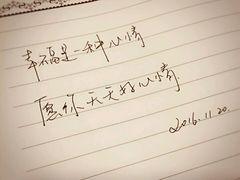 幸福是一种心情
愿你天天好心情
2016.11.20.